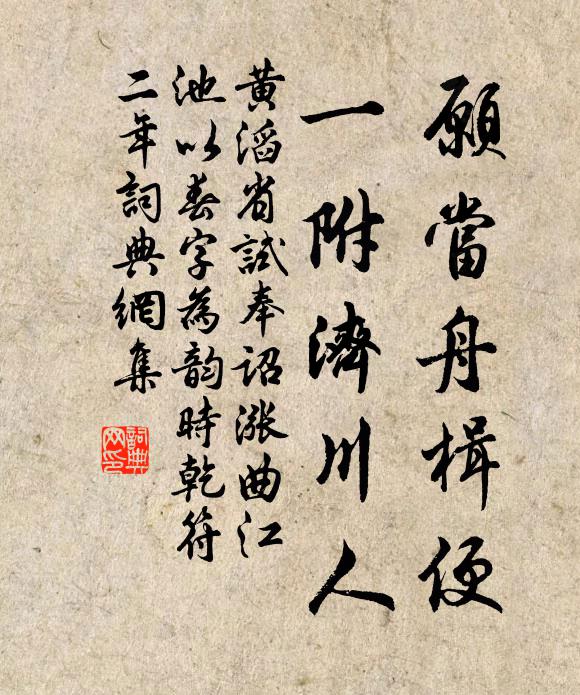 願當舟楫便
一附濟川人
黃滔省試奉詔漲曲江
池以春字為韵時乾符
二年詞典網集
詞典
网印